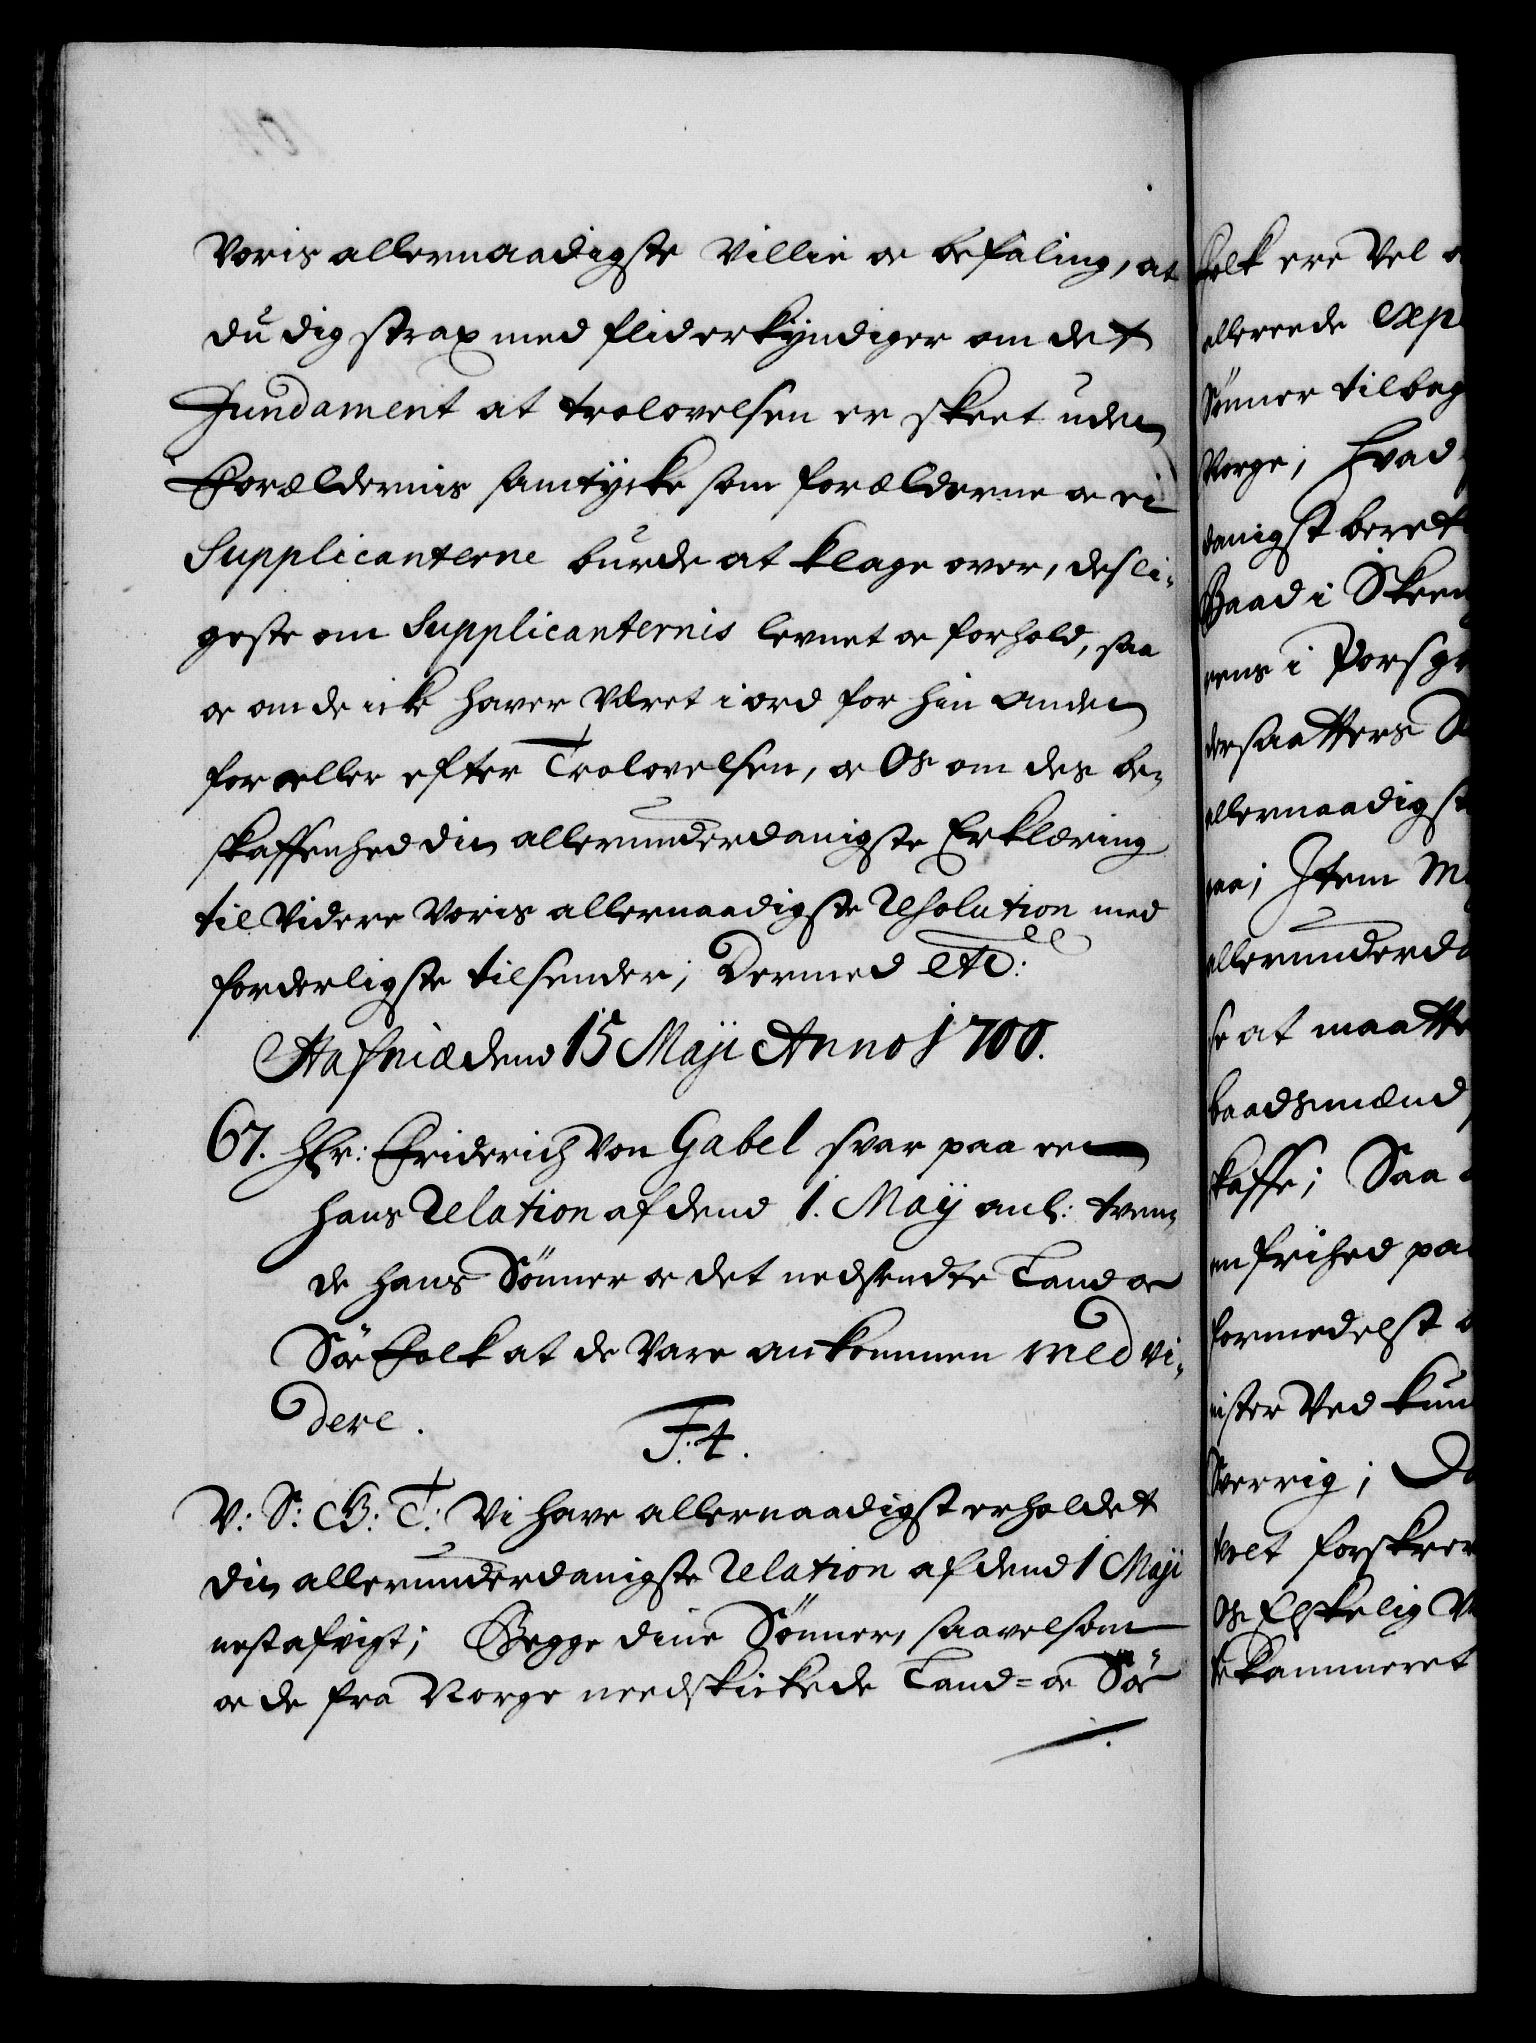 Voris allernaadigste Villie oc befaling, at
du dig strax med flid erkyndiger om det
Fundament at trolovelsen er skeet uden
Forældernis samtycke som forælderne oc ei
Supplicanterne burde at klage over, desli-
geste om Supplicanternis levnet oc forhold, saa
oc om de icke hafver været i ord for hin anden
for eller efter Trolovelsen, oc Os om des be-
skaffenhed din allerunderdanigste Erklæring
til videre Voris allernaadigste Resolution med
forderligste tilsender; Dermed etc:
Hafniæ dend 15 Maji Anno 1700.
67. Hr: Friderich von Gabel svar paa een
hans Relation af dend 1. Maij anl: tven-
de hans Sönner oc det nedsendte Land oc
Söe Folk at de vare ankommen med vi-
dere.
F: 4.
V: S: G: T: Vi have allernaadigst erholdet
din allerunderdanigste Relation af dend 1 Maji
nest afvigt; Begge dine Sönner, saavelsom
oc de fra Norge needskickede Land= oc Söe
folk ere vel
allereede exp
Sönner tilbag
Norge; hvad
danigst beret
Baad i Skeen
eens i Porsgr
dersaatters
allernaadigst
paa; Item
allerunderda
se at maatte
baadsmænd
skaffe; Saa
en frihed paa
formedelst
nister ved
Sverrig;
forskrev
Os Elskelig
kammeret